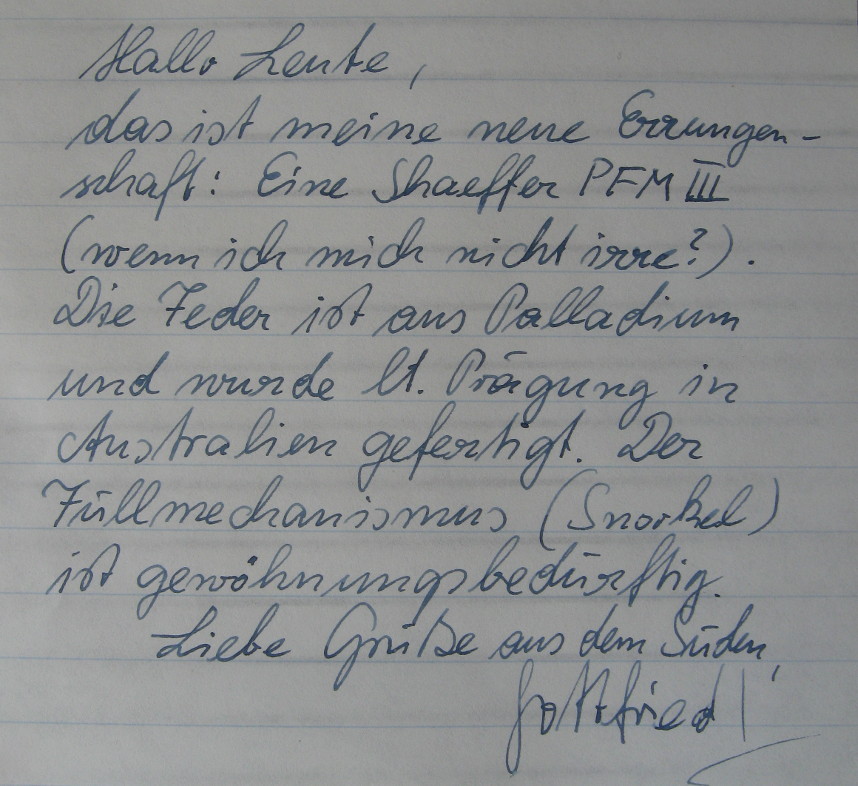 Hallo Leute,
das ist meine neue Errungen-
schaft: Eine Shaeffer PFM III
(wenn ich mich nicht irre?).
Die Feder ist aus Palladium
und wurde lt. Prägung in
Australien gefertigt. Der
Füllmechanismus (Snorkel)
ist gewöhnungsbedürftig.
Liebe Grüße aus dem Süden,
Gottfried